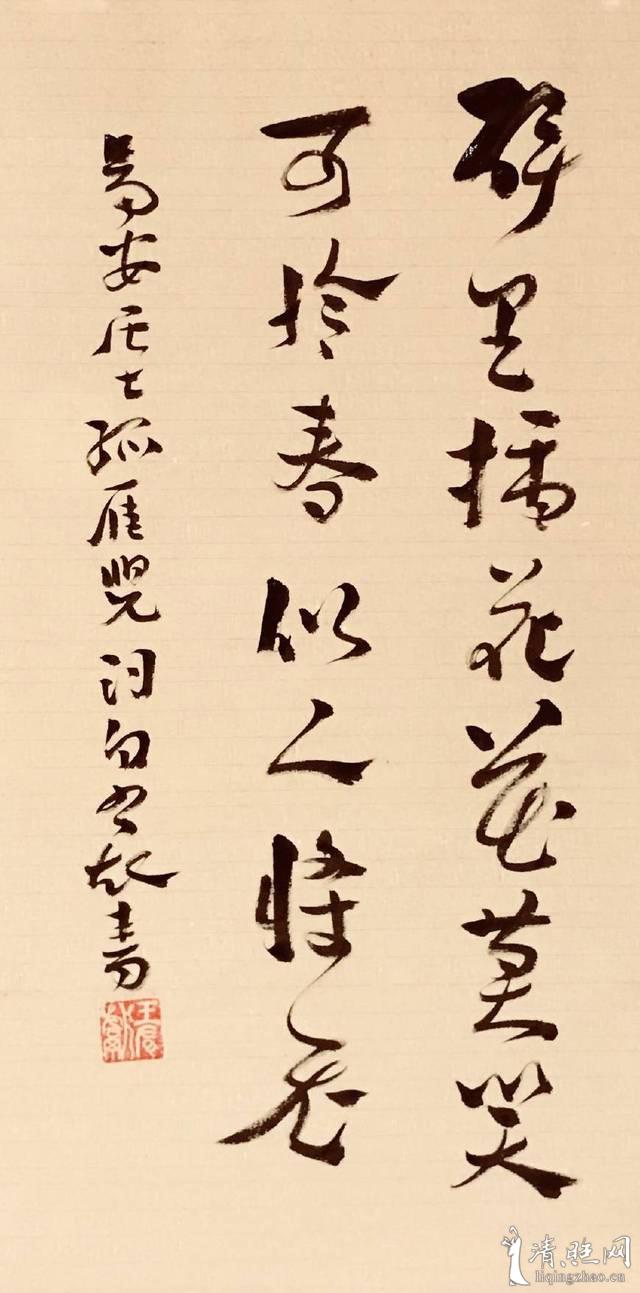 醉里插花花莫笑
可怜春似人将老
易安居士孤雁兒词句書
清照网
liqingzhao.cn